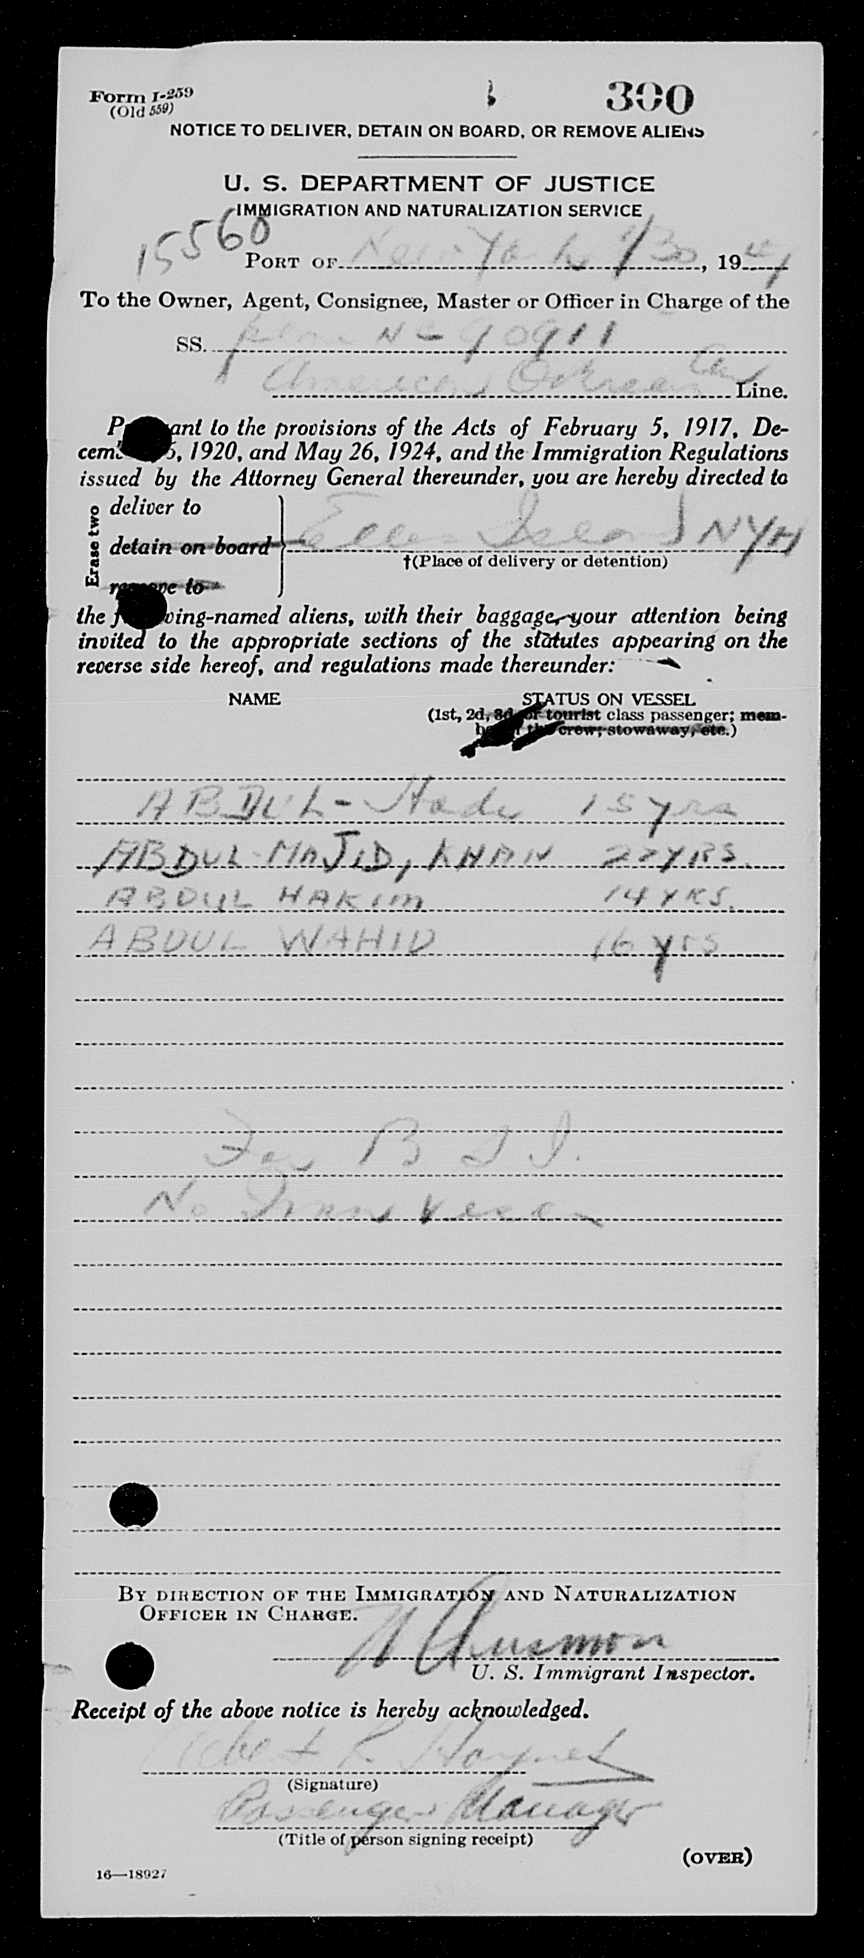 Form I-259
(Old 559)
300
NOTICE TO DELIVER, DETAIN ON BOARD, OR REMOVE ALIENS
U. S. DEPARTMENT OF JUSTICE
IMMIGRATION AND NATURALIZATION SERVICE
15560
PORT OF New York 9/30, 1947
To the Owner, Agent, Consignee, Master or Officer in Charge of the
SS. plane NC 90911
American Overseas Line.
Pursuant to the provisions of the Acts of February 5, 1917, De-
cember 5, 1920, and May 26, 1924, and the Immigration Regulations
issued by the Attorney General thereunder, you are hereby directed to
Erase two
deliver to
detain on board
Ellis Island NYH
†(Place of delivery or detention)
remove to
the following-named aliens, with their baggage, your attention being
invited to the appropriate sections of the statutes appearing on the
reverse side hereof, and regulations made thereunder:
NAME STATUS ON VESSEL
(1st, 2d, 3d, or tourist class passenger; mem-
ber of the crew; stowaway, etc.)
ABDUL- Hadi 15 yrs
ABDUL-MAJID, KHAN 22 YRS.
ABDUL HAKIM 14 YRS.
ABDUL WAHID 16 yrs
For B S I.
No
BY DIRECTION OF THE IMMIGRATION AND NATURALIZATION
OFFICER IN CHARGE.
U. S. Immigrant Inspector.
Receipt of the above notice is hereby acknowledged.
R Haynes
(Signature)
Passenger Manager
(Title of person signing receipt)
(OVER)
16—18927